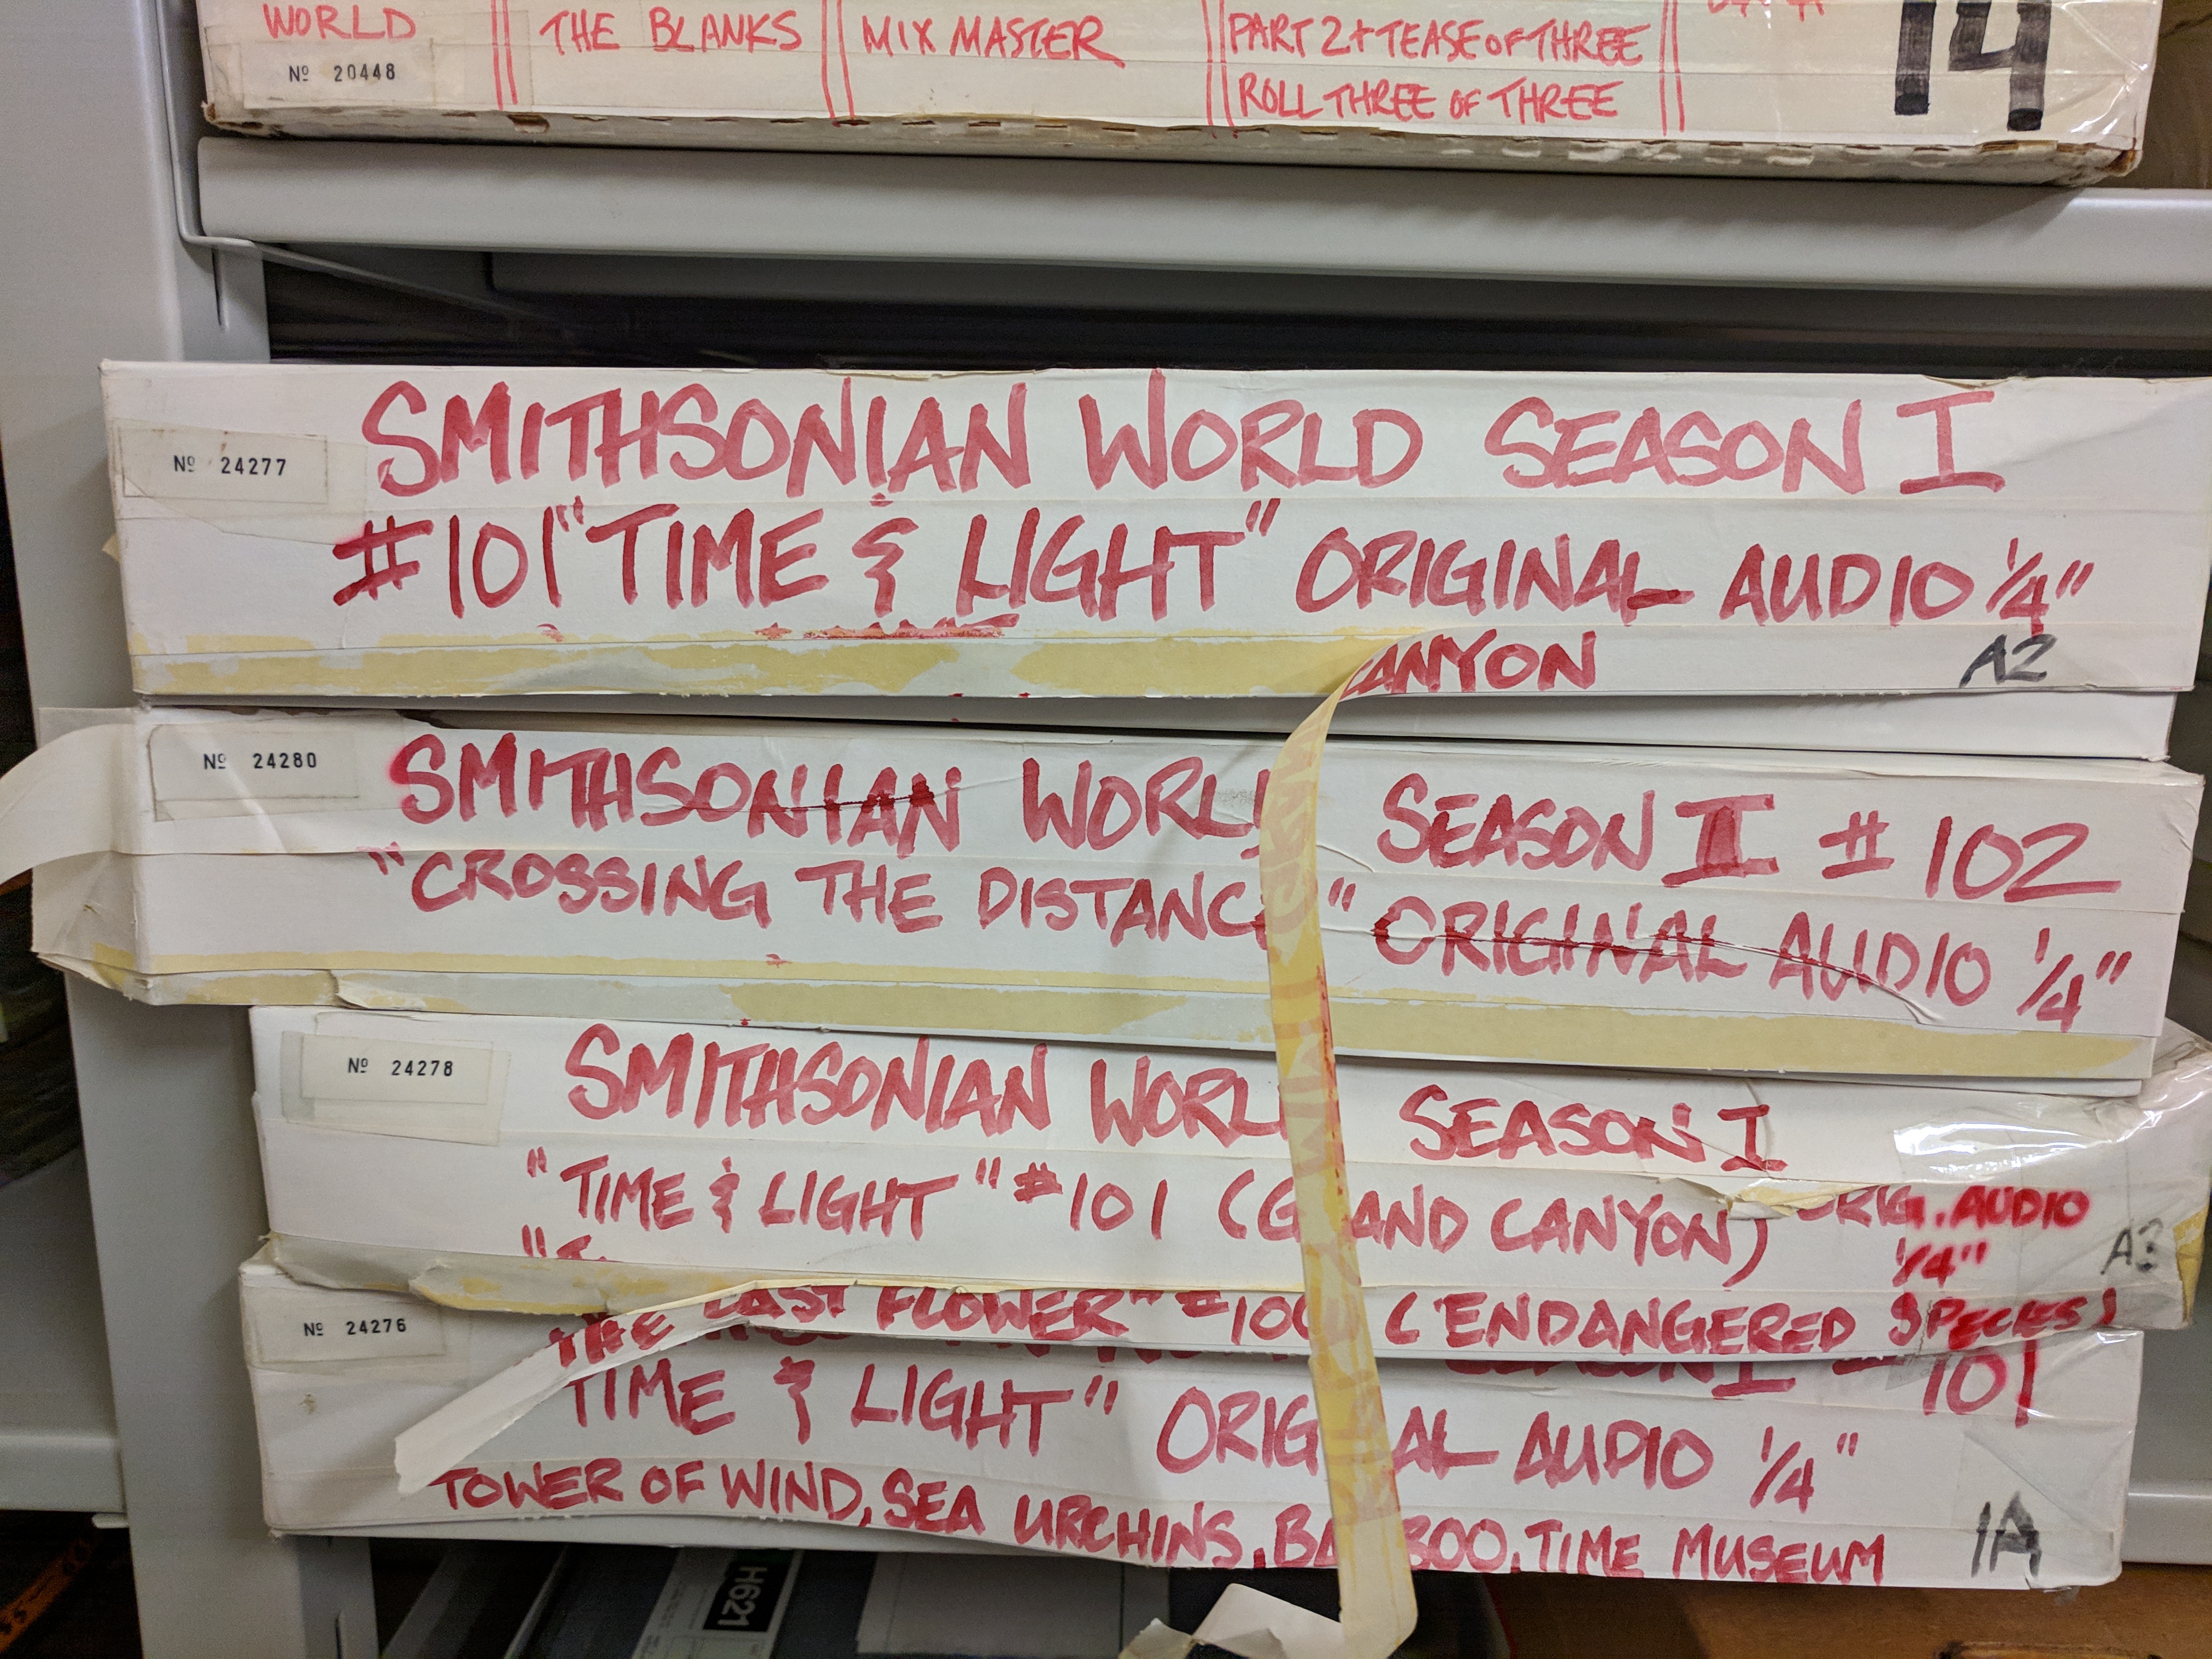 WORLD
Nº 20448
THE BLANKS
MIX MASTER
PART 2 + TEASE OF THREE
ROLL THREE OF THREE
14
Nº 24277
SMITHSONIAN WORLD SEASON I
#101 "TIME & LIGHT" ORIGINAL AUDIO 1/4"
CANYON
A2
Nº 24280
SMITHSONIAN WORL SEASON II # 102
"CROSSING THE DISTANC " ORIGINAL AUDIO 1/4"
Nº 24278
SMITHSONIAN WORL SEASON I
"TIME & LIGHT" #101 (G AND CANYON) ORIG. AUDIO
1/4"
A3
THE LAST FLOWER" (ENDANGERED SPECIES)
Nº 24276
101
TIME & LIGHT" ORIG AL AUDIO 1/4"
TOWER OF WIND, SEA URCHINS, BA BOO, TIME MUSEUM
1A
H621